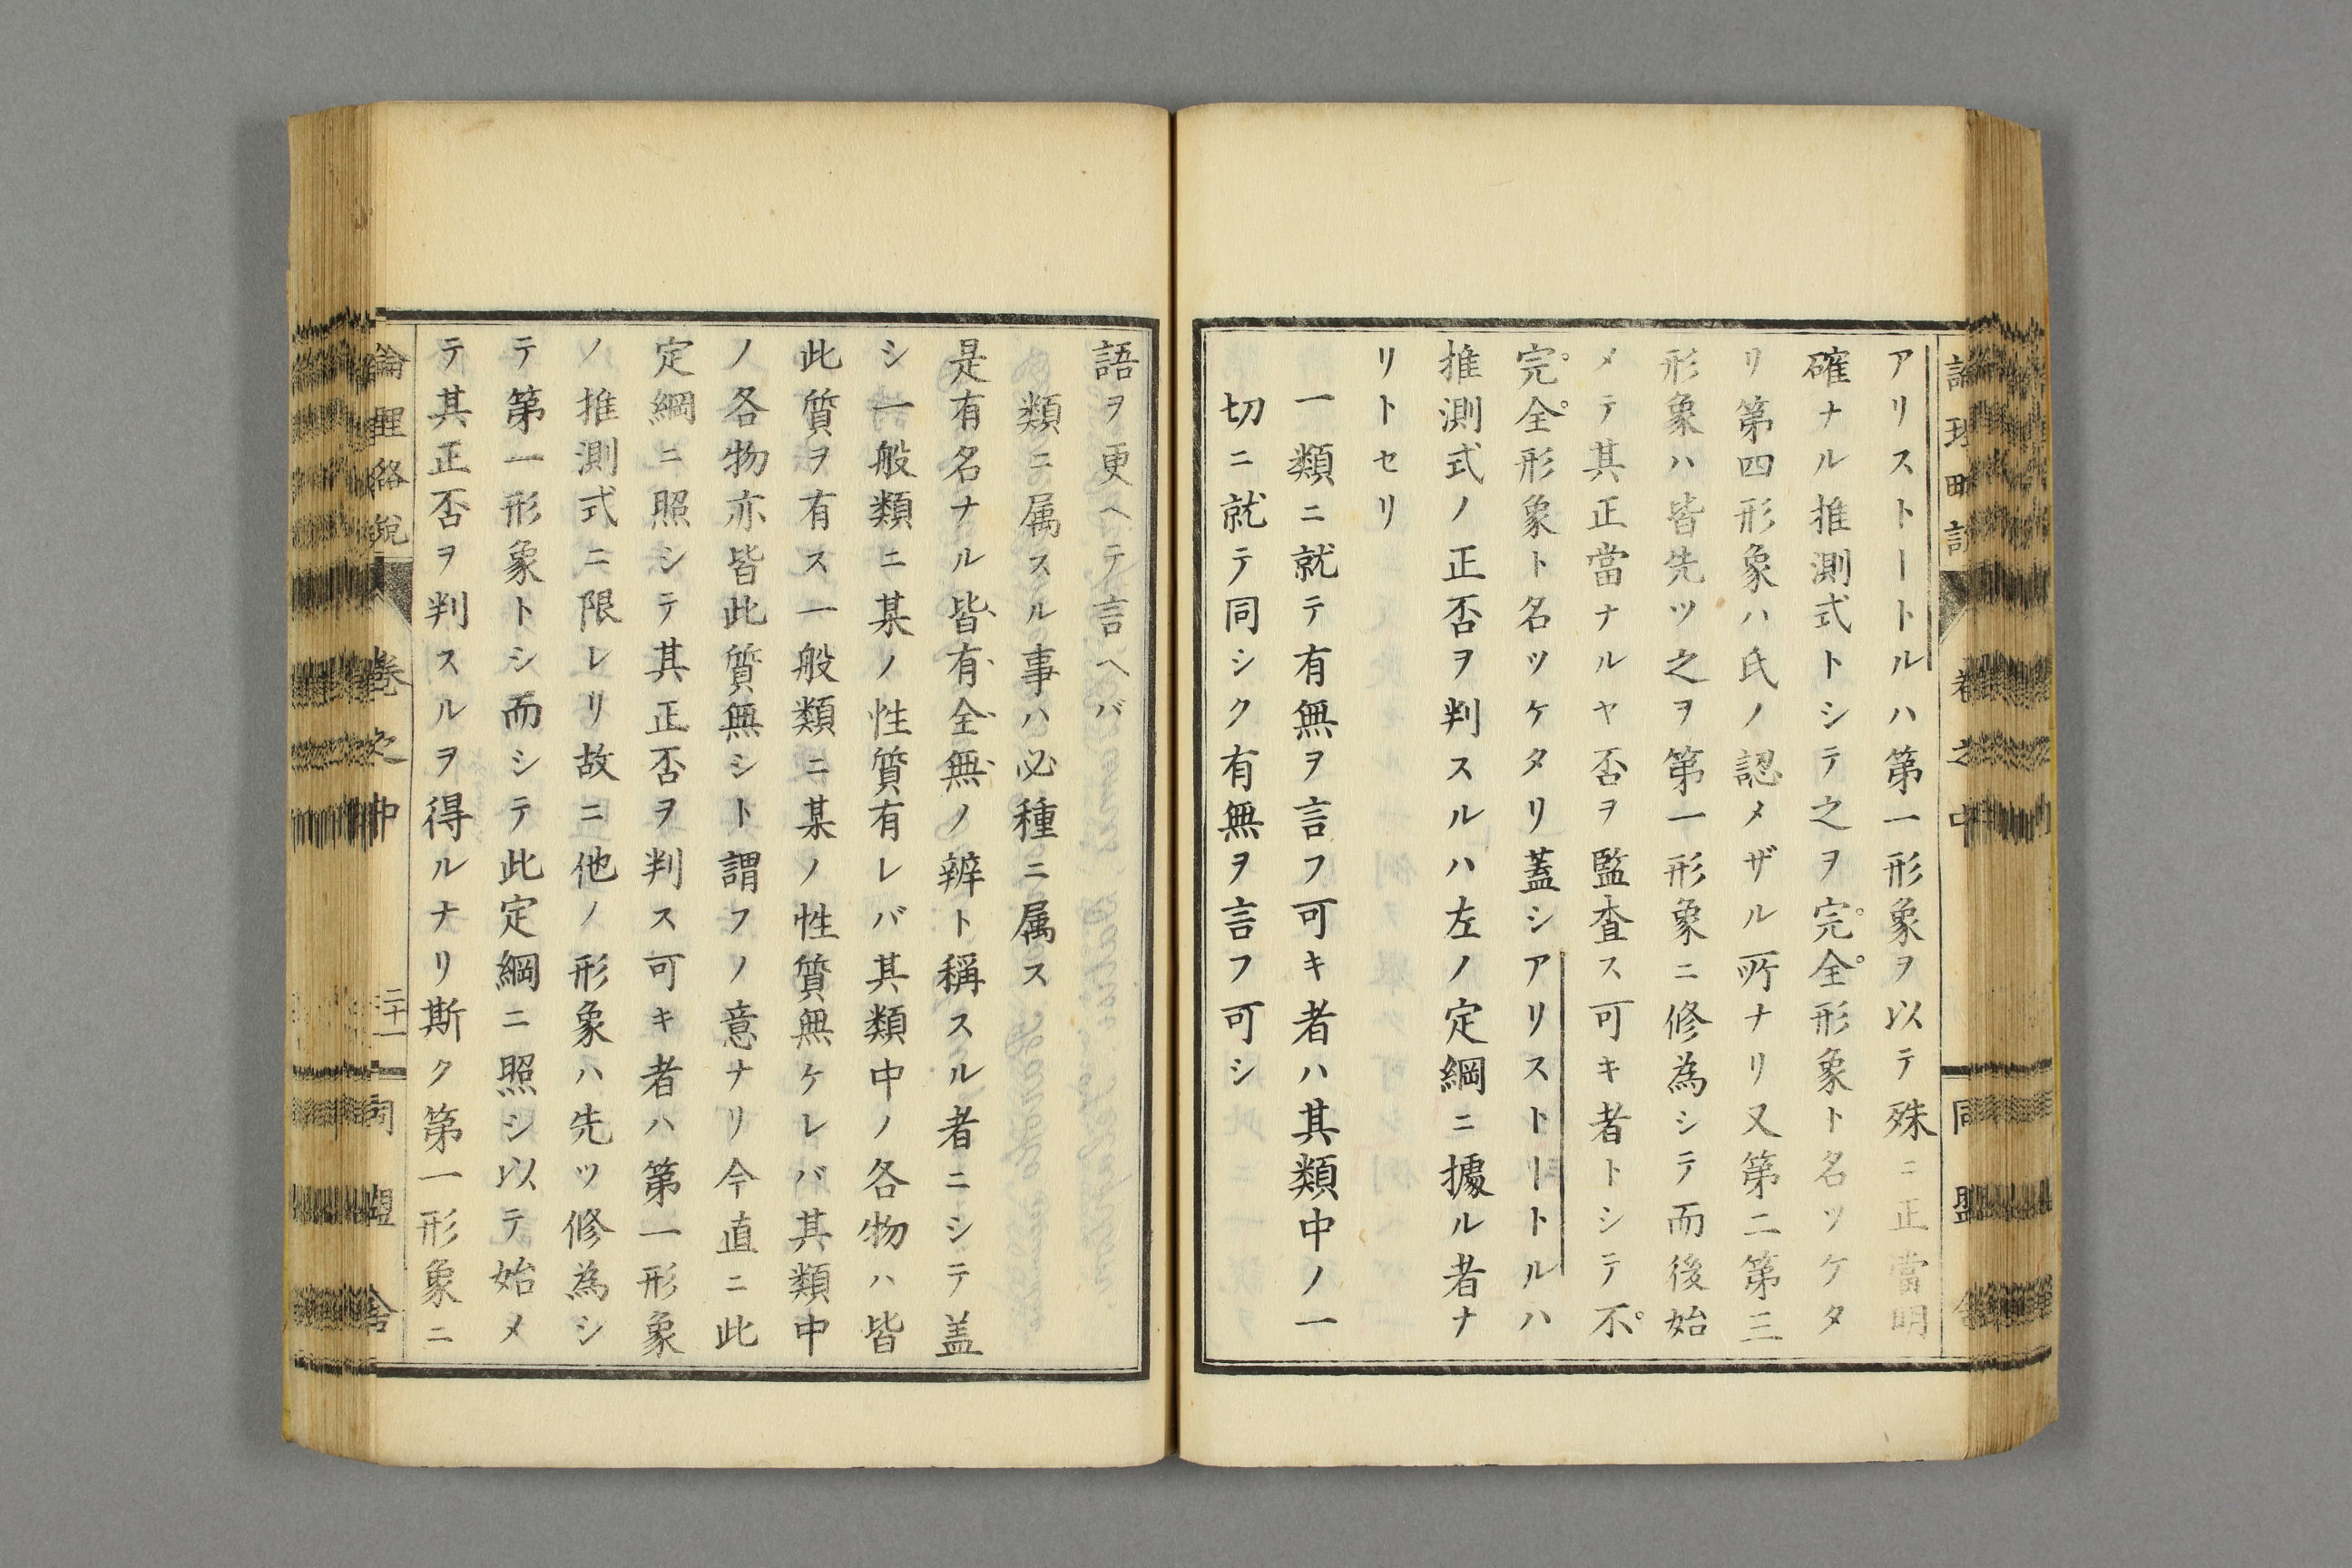 アリストートルハ第一形象ヲ以テ殊ニ正當明
確ナル推測式トシテ之ヲ完全形象ト名ツケタ
リ第四形象ハ氏ノ認メザル所ナリ又第二第三
形象ハ皆先ツ之ヲ第一形象ニ修為シテ而後始
メテ其正當ナルヤ否ヲ監査ス可キ者トシテ不
完全形象ト名ツケタリ蓋シアリストートルハ
推測式ノ正否ヲ判スルハ左ノ定綱ニ據ル者ナ
リトセリ
一類ニ就テ有無ヲ言フ可キ者ハ其類中ノ一
切ニ就テ同シク有無ヲ言フ可シ
同盟舎
語ヲ更ヘテ言ヘバ
類ニ属スル事ハ必種ニ属ス
是有名ナル皆有全無ノ辨ト稱スル者ニシテ盖
シ一般類ニ某ノ性質有レバ其類中ノ各物ハ皆
此質ヲ有ス一般類ニ某ノ性質無ケレバ其類中
ノ各物亦皆此質無シト謂フノ意ナリ今直ニ此
定綱ニ照シテ其正否ヲ判ス可キ者ハ第一形象
ノ推測式ニ限レリ故ニ他ノ形象ハ先ツ修為シ
テ第一形象トシ而シテ此定綱ニ照シ以テ始メ
テ其正否ヲ判スルヲ得ルナリ斯ク第一形象ニ
論理略説 卷之中 二十一 同盟舎